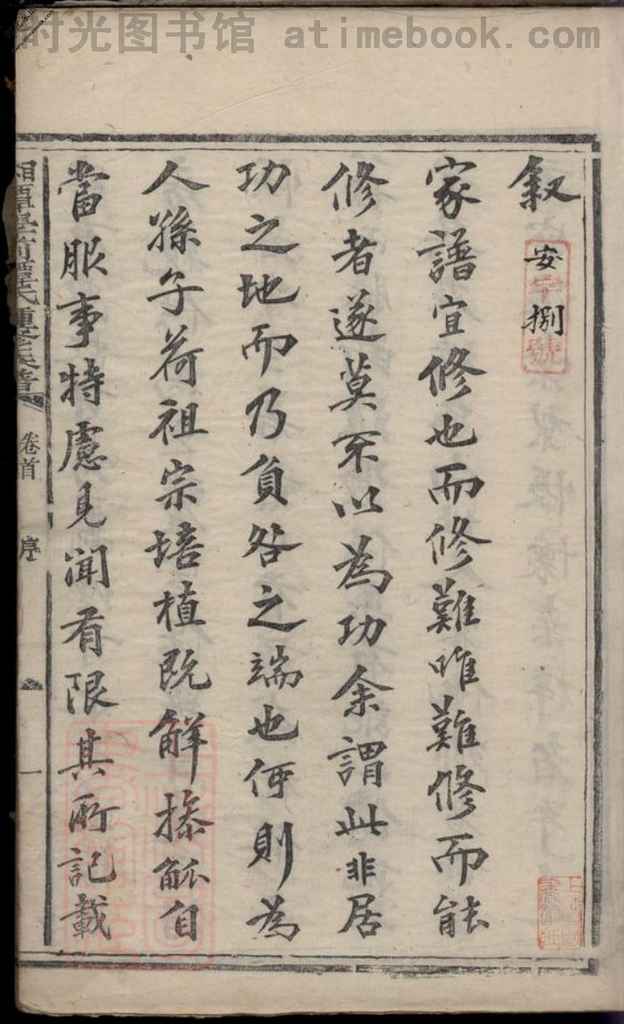 时光图书馆 atimebook.com
叙
安字捌號
家譜宜修也而修難唯難修而能
修者遂莫不以為功余謂此非居
功之地而乃負咎之端也何則為
人孫子荷祖宗培植既解操觚自
當服事特慮見聞有限其所記載
卷首
序
一